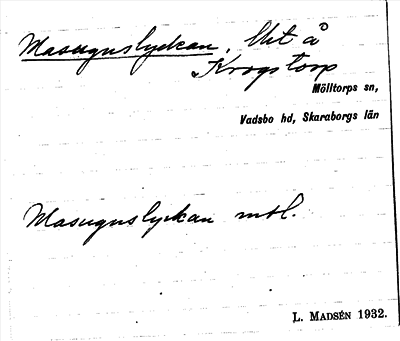 Masugnslyckan. Mt å
Krogstorp
Mölltorps sn,
Vadsbo hd, Skaraborgs län
Masugnslyckan mtl.
L. MADSÉN 1932.